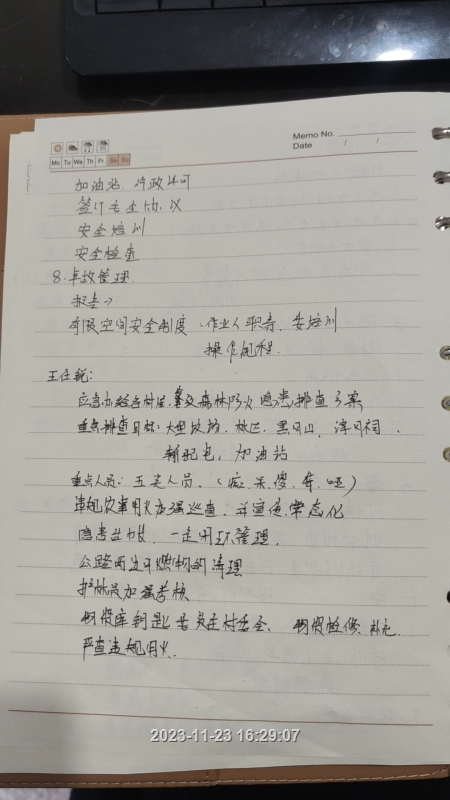 Memo No.
Date / /
Mo Tu We Th Fr Sa Su
加油站、行政许可
签订安全协议
安全培训
安全检查
8.事故管理
报告→
有限空间安全制度、作业人职责、安培训
操作规程.
王任锐:
应急办 森林防火隐患排查方案
重点排查 坟场、林区、
输配电,加油站
重点人员:五类人员、(痴、呆、傻、聋、哑)
违规农事用火加强巡查,并宣传常态化
隐患 一定闭环管理.
公路两边可燃物的清理
护林员加强考核
物资库钥匙 村委会、物资检修、补充.
严查违规用火.
2023-11-23 16:29:07